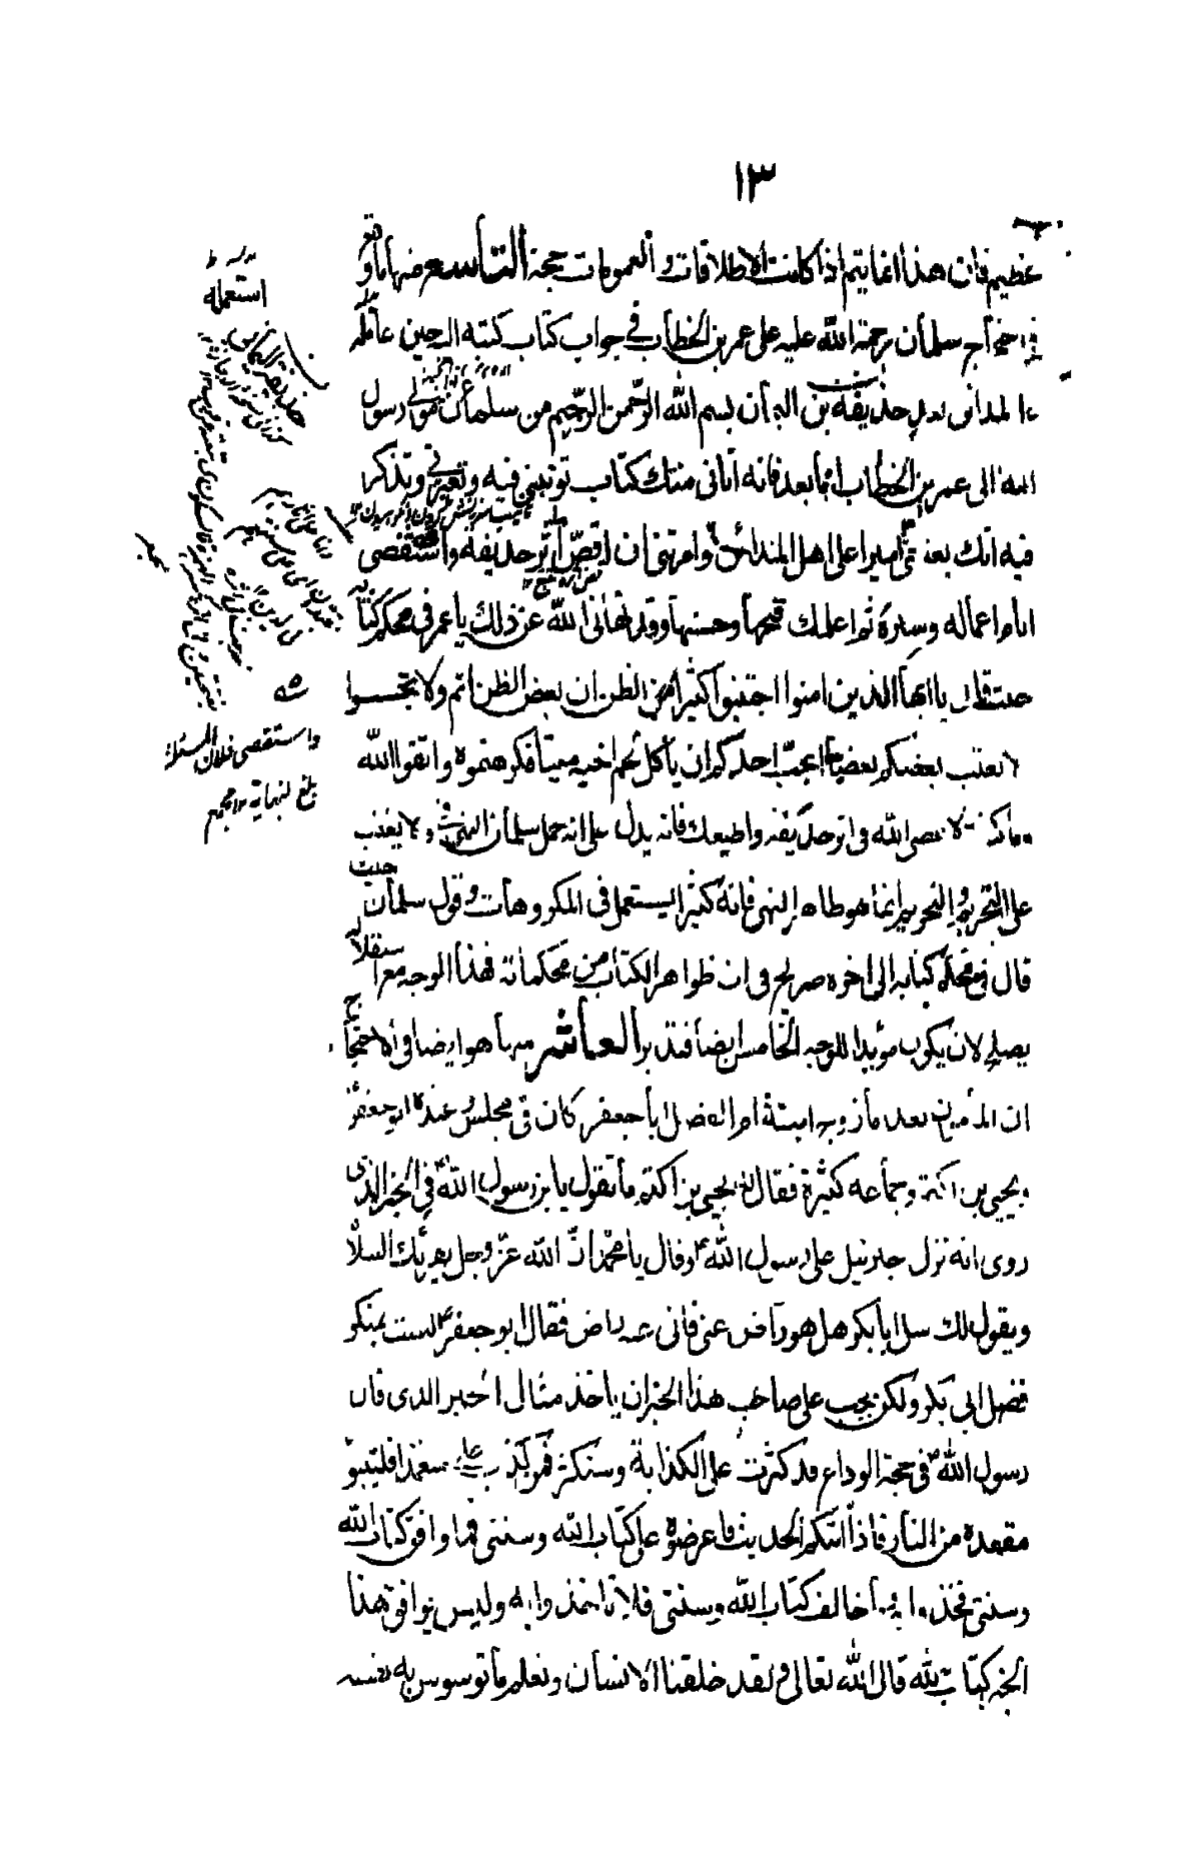 ١٣
عظيم فان هذا انما يتم اذا كانت الاطلاقات و العمومات حجة التاسع منها ما وقع
احتجاج سلمان رحمة الله عليه على عمر بن الخطاب في جواب كتاب كتبه اليه حين عامله
المدائن بعد حذيفة بن اليمان بسم الله الرحمن الرحيم من سلمان مولى رسول
الله الى عمر بن الخطاب اما بعد فانه اتانى منك كتاب تؤنبني فيه وتعيرني وتذكر
فيه انك بعثتني اميرا على اهل المدائن وامرتني ان اقص اثر حذيفة واستقصى
ايام اعماله وسيره ثم اعلمك قبيحها وحسنها وقد نهانى الله عن ذلك يا عمر في محكم كتابه
حيث قال يا ايها الذين امنوا اجتنبوا كثيرا من الظن ان بعض الظن اثم ولا تجسسوا
لا يغتب بعضكم بعضا ايحب احدكم ان يأكل لحم اخيه ميتا فكرهتموه واتقوا الله
وما كنت لاعصى الله في اثر حذيفة واطيعك فانه يدل على انه حمل سلمان النهى و لا يغتب
على التحريم و التحريم انما هو ظاهر النهى فانه كثيرا يستعمل في المكروهات وقول سلمان حيث
قال في محكم كتابه الى اخره صريح في ان ظواهر الكتاب من محكماته فهذا الوجه مع استقلاله
يصلح لان يكون مؤيدا للوجه الخامس ايضا فتدبر العاشر منها ما هو ايضا في الاحتجاج
ان المأمون بعد ما زوج ابنته ام الفضل ابا جعفر كان في مجلس وعنده ابو جعفر
ويحيى بن اكثم وجماعة كثيرة فقال له يحيى بن اكثم ما تقول يا بن رسول الله في الخبر الذى
روى انه نزل جبرئيل على رسول الله وقال يا محمد ان الله عز وجل يقرئك السلام
ويقول لك سل ابا بكر هل هو راض عنى فانى عنه راض فقال ابو جعفر لست بمنكر
فضل ابى بكر ولكن يجب على صاحب هذا الخبر ان ياخذ مثال الخبر الذى قال
رسول الله في حجة الوداع قد كثرت على الكذابة وستكثر فمن كذب على متعمدا فليتبوء
مقعده من النار فاذا اتاكم الحديث فاعرضوه على كتاب الله وسنتى فما وافق كتاب الله
وسنتى فخذوا به وما خالف كتاب الله وسنتى فلا تاخذوا به وليس يوافق هذا
الخبر كتاب الله قال الله تعالى و لقد خلقنا الانسان ونعلم ما توسوس به نفسه
استعمله
واستقصى فلان المسئلة
بلغ النهاية مجمع